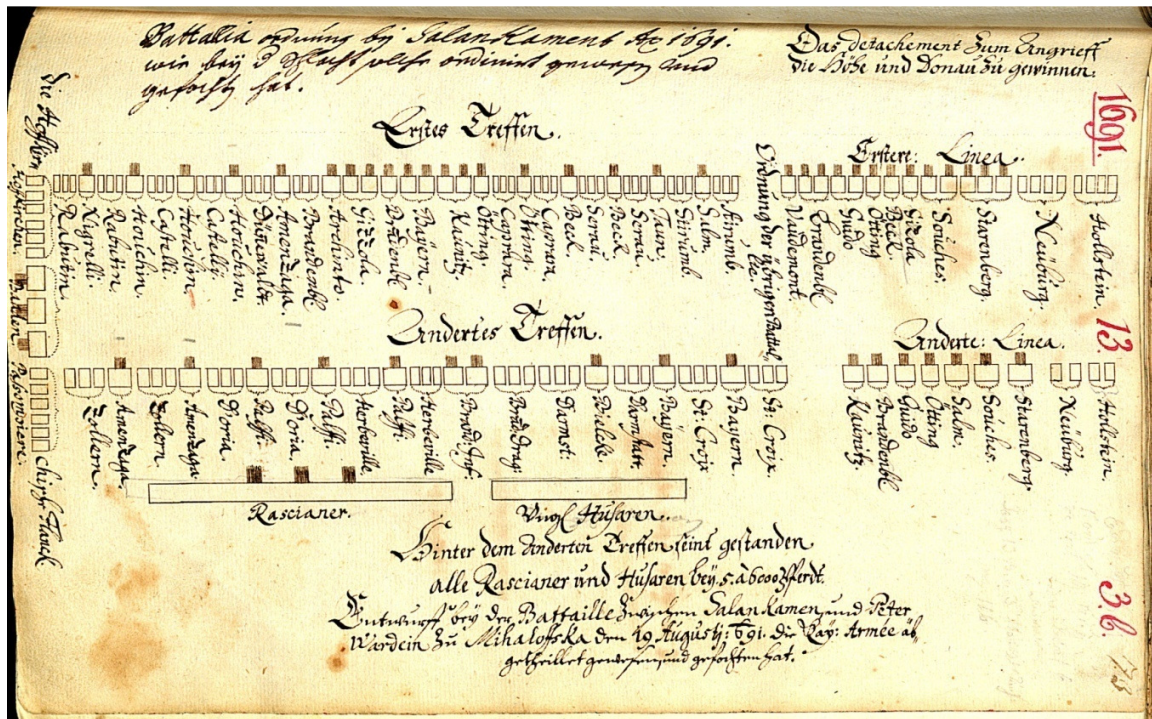 Battalia ordnung bij Salankament Ao 1691.
wie bey d Schlacht solche ordinirt gewesen und
gefochten hat.
Das detachement Zum Angrieff
die Höhe und Donau zu gewinnen:
1691.
Erstes Treffen.
Erstere: Linea.
Rabutin.
Nigrelli.
Rabutin
Houchin.
Castelli.
Houchin
Castelli
Houchin.
Dünewaldt.
Amenzaga
Brandenbl
Archinto.
Gizzola.
Brandenbl
Bayern.
Kaunitz.
Otting.
Caprara
Otting.
Caprara.
Beck.
Serau.
Beck
Serau.
Taun.
Stirumb.
Salm.
Stirumb.
Ordnung der übrigen Battal
Vaudemont.
Brandenbl
Guido
Otting
Beck
Gizola
Souches.
Starenberg.
Neuburg.
Holstein.
13.
Andertes Treffen.
Anderte: Linea.
Zollern.
Amenzaga.
Zollern.
Amenzaga.
Doria
Palffi.
Doria
Palffi.
Herbeville
Palffi.
Herbeville
Brand: Inf:
Brand Drag:
Darmst:
Bielck.
Darmstatt
Bayern.
St: Croix
Bayern
St: Croix.
Kaunitz.
Brandenbl
Guido
Otting
Salm.
Souches.
Starenberg.
Neuburg.
Holstein.
Hofkirchen.
Flanck.
Rascianer.
Husaren.
Hinter dem Anderten Treffen seint gestanden
alle Rascianer und Husaren bey 5. à 6000 Pferdt.
Entwurff bey der Battaille Zwischen Salankamen und Peter
Wardein Zu Mihaloffska den 19 Augustj: 691. die Kay: Armée ab,
getheillet gewesen und gefochten hat.
3.b.
73